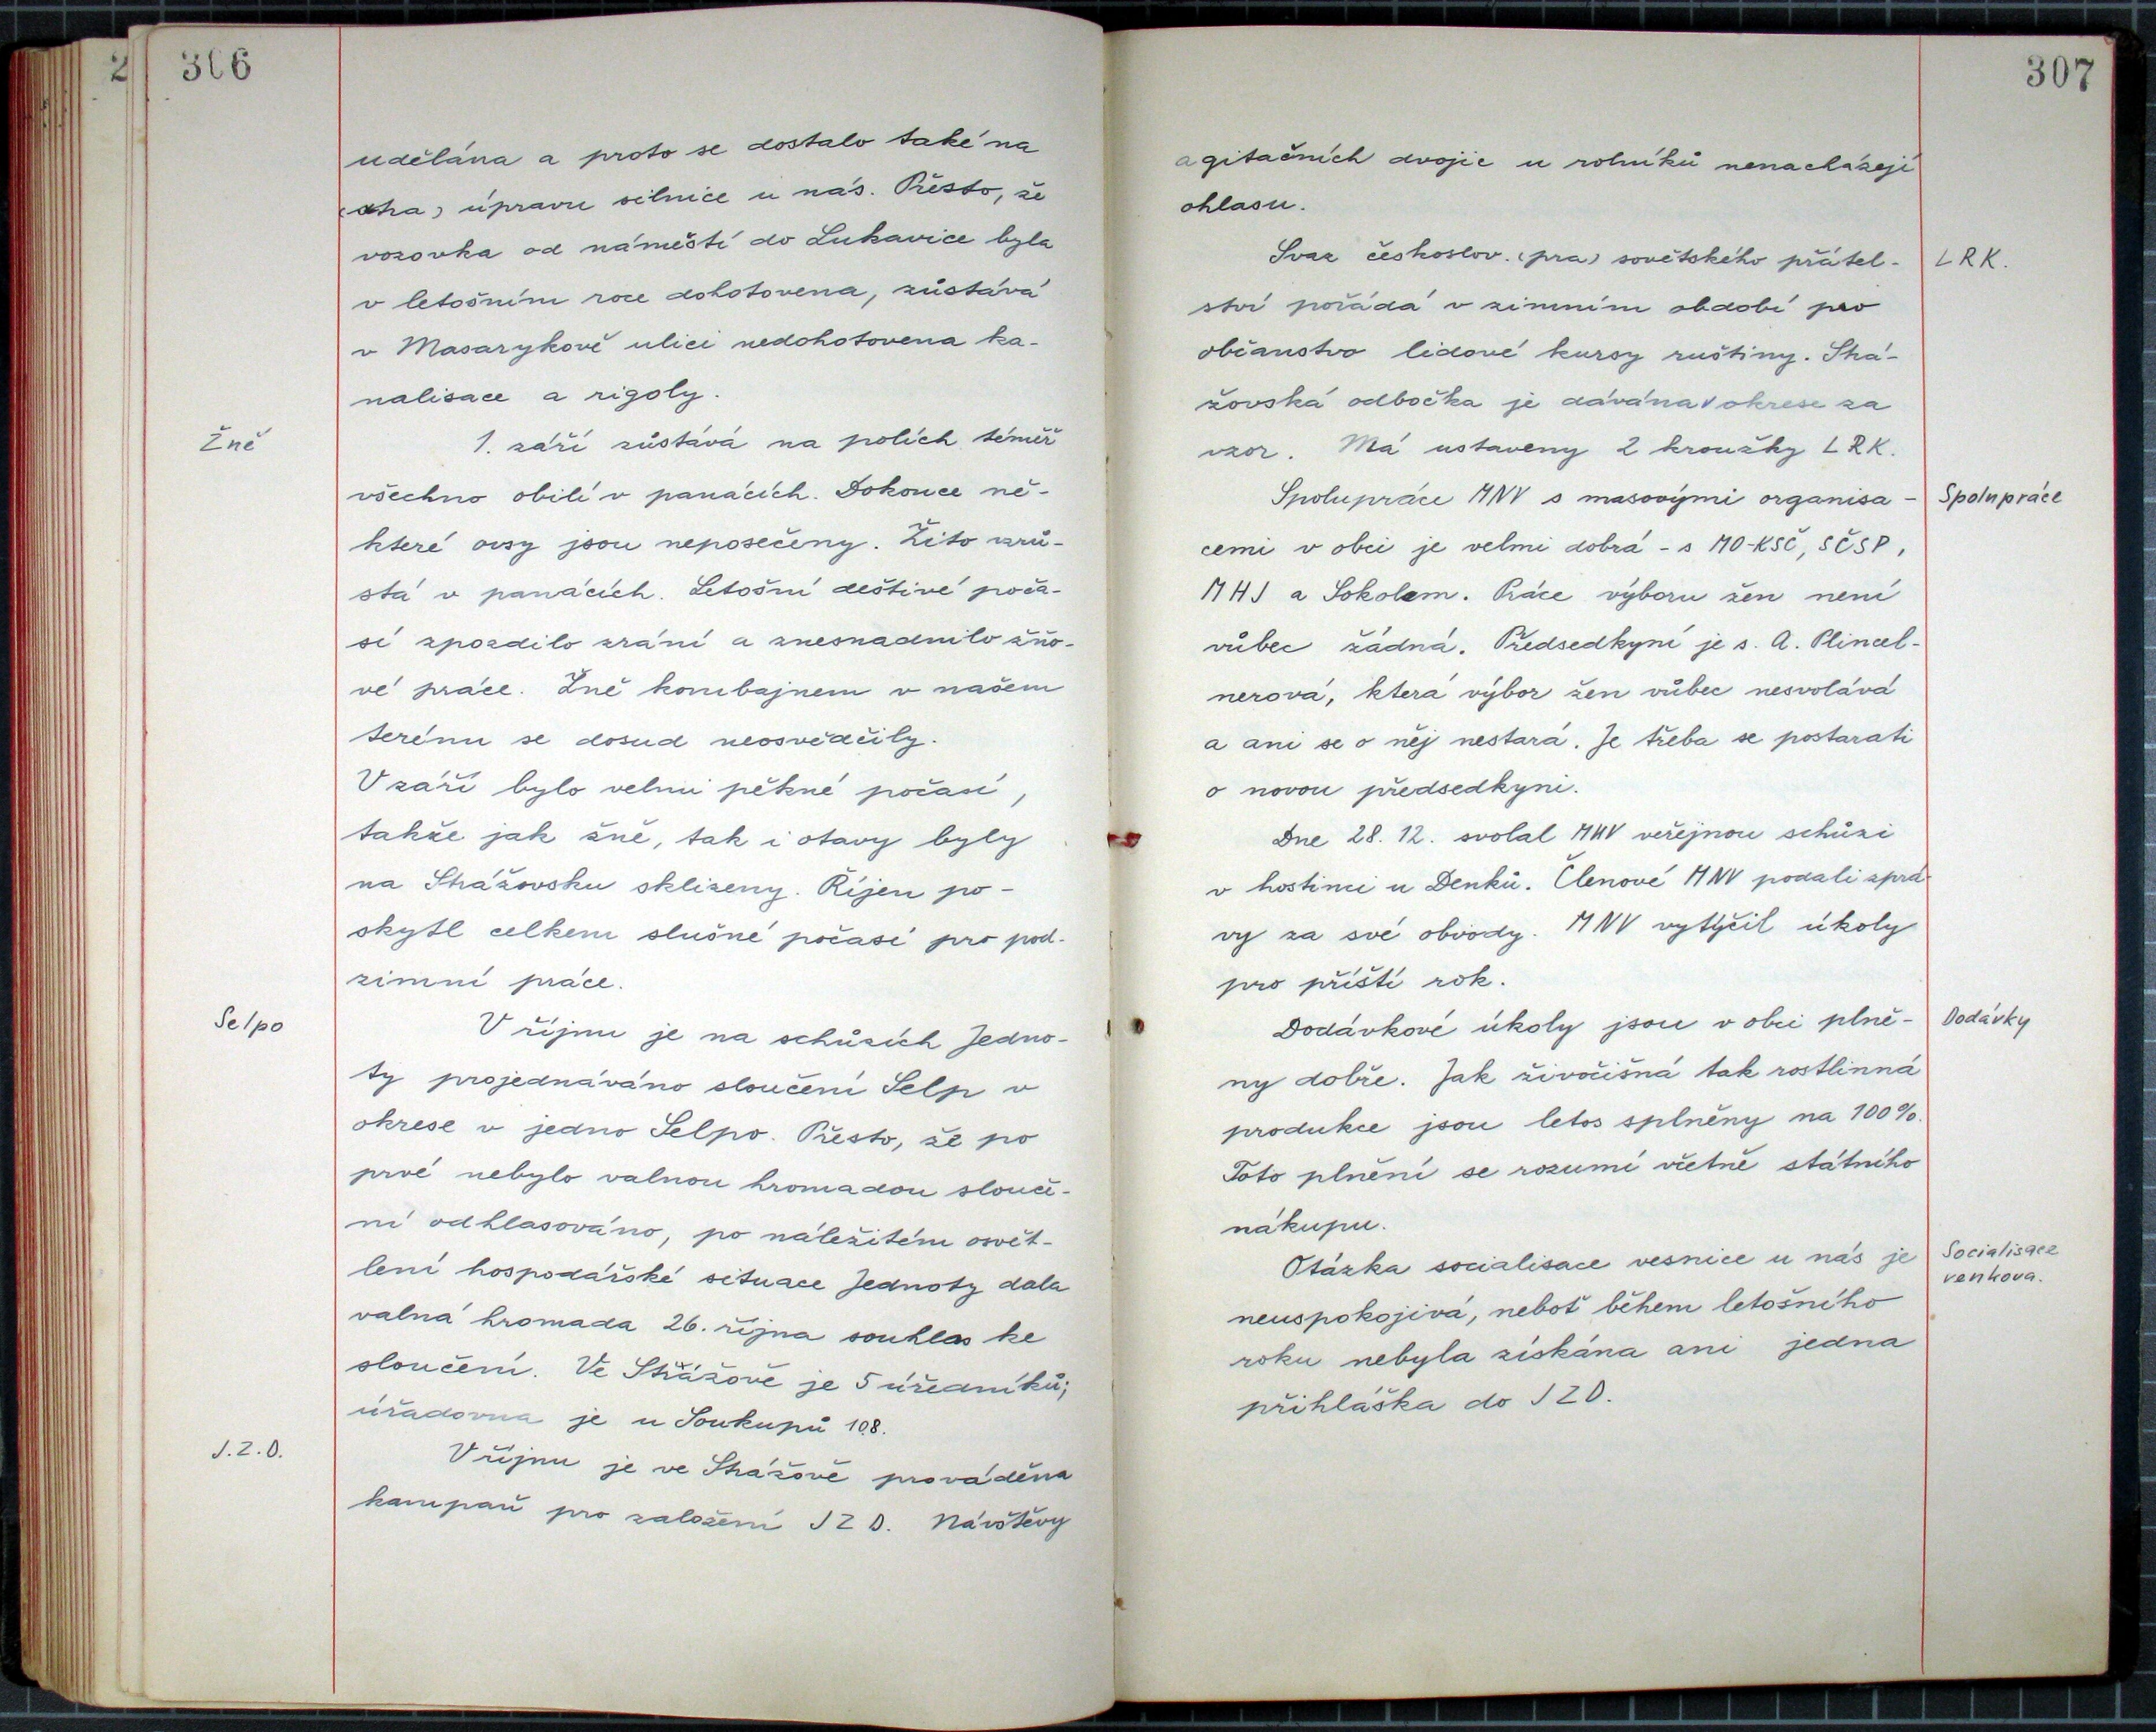 306
udělána a proto se dostalo také na
(dra) úpravu silnice u nás. Přesto, že
vozovka od náměstí do Lukavice byla
v letošním roce dohotovena, zůstává
v Masarykově ulici nedohotovena ka-
nalisace a rigoly.
Žně
1. září zůstává na polích téměř
všechno obilí v panácích. Dokonce ně-
které ovsy jsou neposečeny. Žito vzrů-
stá v panácích. Letošní deštivé poča-
sí zpozdilo zrání a znesnadnilo žňo-
vé práce. Žně kombajnem v našem
terénu se dosud neosvědčily.
V září bylo velmi pěkné počasí,
takže jak žně, tak i otavy byly
na Strážovsku sklizeny. Říjen po-
skytl celkem slušné počasí pro pod-
zimní práce.
Selpo
V říjnu je na schůzích Jedno-
ty projednáváno sloučení Selp v
okrese v jedno Selpo. Přesto, že po
prvé nebylo valnou hromadou slouče-
ní odhlasováno, po náležitém osvět-
lení hospodářské situace Jednoty dala
valná hromada 26. října souhlas ke
sloučení. Ve Strážově je 5 úředníků;
úřadovna je u Soukupů 108.
J.Z.D.
V říjnu je ve Strážově prováděna
kampaň pro založení JZD. Návštěvy
307
agitačních dvojic u rolníků nenacházejí
ohlasu.
Svaz českoslov. (pra) sovětského přátel-
LRK.
ství pořádá v zimním období pro
občanstvo lidové kursy ruštiny. Strá-
žovská odbočka je dávána v okrese za
vzor. Má ustaveny 2 kroužky LRK.
Spolupráce MNV s masovými organisa-
Spolupráce
cemi v obci je velmi dobrá - s MO-KSČ, SČSP,
MHJ a Sokolem. Práce výboru žen není
vůbec žádná. Předsedkyní je s. A. Plincel-
nerová, která výbor žen vůbec nesvolává
a ani se o něj nestará. Je třeba se postarati
o novou předsedkyni.
Dne 28. 12. svolal MNV veřejnou schůzi
v hostinci u Denků. Členové MNV podali zprá-
vy za své obvody. MNV vytýčil úkoly
pro příští rok.
Dodávkové úkoly jsou v obci plně-
Dodávky
ny dobře. Jak živočišná tak rostlinná
produkce jsou letos splněny na 100%.
Toto plnění se rozumí včetně státního
nákupu.
Otázka socialisace vesnice u nás je
Socialisace
venkova.
neuspokojivá, neboť během letošního
roku nebyla získána ani jedna
přihláška do JZD.